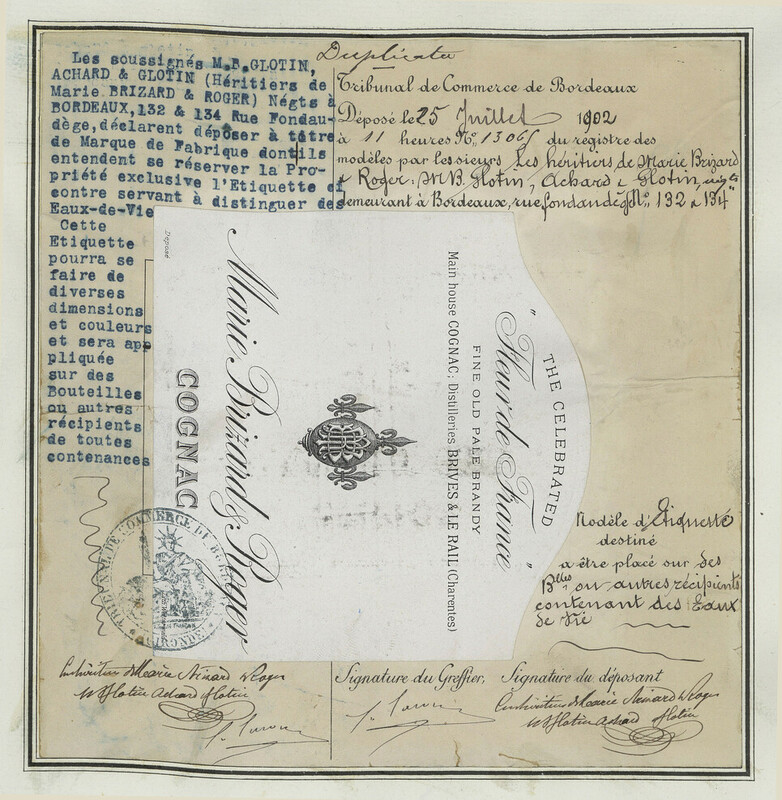 Duplicata
Les soussignés M.B.GLOTIN,
ACHARD & GLOTIN (Héritiers de
Marie BRIZARD & ROGER) Négts à
BORDEAUX,132 & 134 Rue Fondau-
dège,déclarent déposer à titre
de Marque de Fabrique dont ils
entendent se réserver la Pro-
priété exclusive l'Etiquette ci
contre servant à distinguer des
Eaux-de-Vie
Cette
Etiquette
pourra se
faire de
diverses
dimensions
et couleurs
et sera ap
pliquée
sur des
Bouteilles
ou autres
récipients
de toutes
contenances
Tribunal de Commerce de Bordeaux
Déposé le 25 Juillet 1902
à 11 heures No. 13065 du registre des
modèles par les sieurs Les héritiers de Marie Brizard
& Roger: M.B. Glotin, Achard & Glotin, négts
demeurant à Bordeaux, rue fondaudège No. 132 à 134
Déposé
THE CELEBRATED
"Fleur de France"
FINE OLD PALE BRANDY
Main house COGNAC; Distilleries BRIVES & LE RAIL (Charentes)
Marie Brizard & Roger
COGNAC
TRIBUNAL DE COMMERCE DE BORDEAUX
(GIRONDE)
Modèle d'Etiquette
destiné
a être placé sur des
Blles ou autres récipients
contenant des Eaux
de Vie
Signature du Greffier,
Signature du déposant